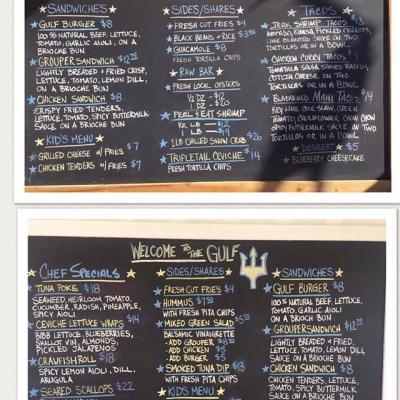 SANDWICHES
GULF BURGER $8
100% NATURAL BEEF, LETTUCE,
TOMATO, GARLIC AIOLI, ON A
BRIOCHE BUN
GROUPER SANDWICH $12.25
LIGHTLY BREADED & FRIED CRISP,
LETTUCE, TOMATO, LEMON DILL,
ON A BRIOCHE BUN
CHICKEN SANDWICH $8
CRISPY FRIED TENDERS,
LETTUCE, TOMATO, SPICY BUTTERMILK
SAUCE ON A BRIOCHE BUN
KID'S MENU
GRILLED CHEESE w/ FRIES $7
CHICKEN TENDERS w/ FRIES $7
SIDES/SHARES
FRESH CUT FRIES $4
BLACK BEANS + RICE
GUACAMOLE $8
FRESH TORTILLA CHIPS
RAW BAR
FRESH LOCAL OYSTERS
1/2 DZ - $12
1 DZ - $20
PEEL & EAT SHRIMP
1/2 LB $12
1 LB $19
1LB CHILLED SNOW CRAB $26
TRIPLETAIL CEVICHE $14
FRESH TORTILLA CHIPS
TACOS
JERK SHRIMP TACOS $13
AVOCADO, JICAMA, PICKLED CARROTS,
TORTILLAS OR IN A BOWL
CHICKEN CURRY TACOS
COTIJA CHEESE, ON TWO
TORTILLAS OR IN A BOWL
BLACKENED MAHI TACOS $14
TOMATO, CAULIFLOWER, CHOW CHOW
SPICY BUTTERMILK SAUCE ON TWO
TORTILLAS OR IN A BOWL
DESSERT $5
BLUEBERRY CHEESECAKE
WELCOME TO THE GULF
CHEF SPECIALS
TUNA POKE $18
SEAWEED, HEIRLOOM TOMATO,
CUCUMBER, RADISH, PINEAPPLE,
SPICY AIOLI
CEVICHE LETTUCE WRAPS $14
BIBB LETTUCE, BLUEBERRIES,
SHALLOT VIN, ALMONDS,
PICKLED JALAPENOS
CRAWFISH ROLL $18
SPICY LEMON AIOLI, DILL,
ARUGULA
SEARED SCALLOPS $22
SIDES/SHARES
FRESH CUT FRIES $4
HUMMUS
WITH FRESH PITA CHIPS
MIXED GREEN SALAD
BALSAMIC VINAIGRETTE
· ADD GROUPER
· ADD CHICKEN $5
· ADD BURGER $5
SMOKED TUNA DIP $13
WITH FRESH PITA CHIPS
KIDS MENU
SANDWICHES
GULF BURGER $8
100% NATURAL BEEF, LETTUCE,
TOMATO, GARLIC AIOLI
ON A BRIOCHE BUN
GROUPER SANDWICH $12.25
LIGHTLY BREADED + FRIED,
LETTUCE, TOMATO, LEMON DILL
SAUCE ON A BRIOCHE BUN
CHICKEN SANDWICH $8
CHICKEN TENDERS, LETTUCE,
TOMATO, SPICY BUTTERMILK
SAUCE ON A BRIOCHE BUN